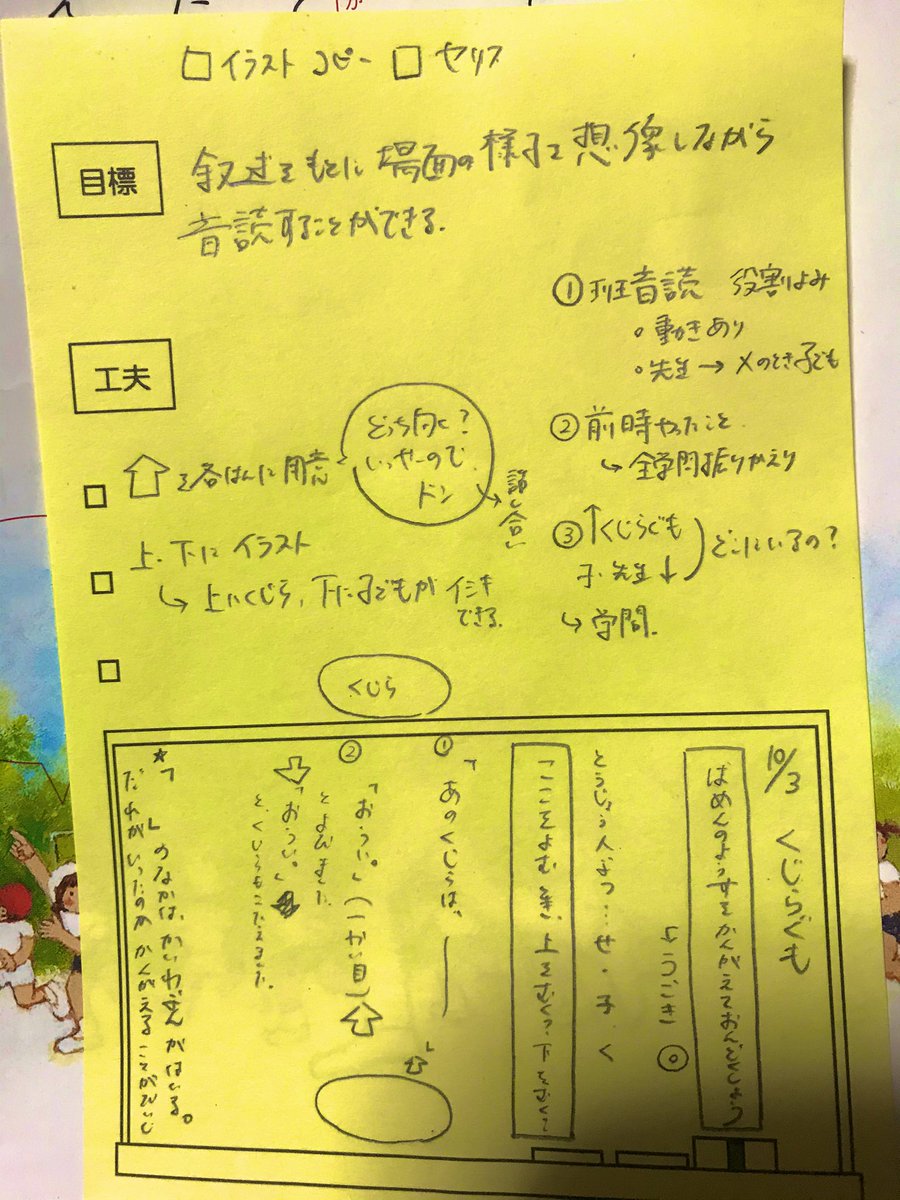 □イラスト コピー □セリフ
目標
叙述をもとに場面の様子を想像しながら
音読することができる.
①班音読 役割よみ
。動きあり
。先生→メのとき子ども
工夫
②前時やったこと
↳全学問振りかえり
□ ⇧を各はんに用意
どっち向く?
いっせーので
ドン
→話し合い
③↑くじらぐも
子.先生↓
どこにいるの?
↳学問.
□ 上.下にイラスト
↳上にくじら、下に子どもが イシキ
できる.
□
くじら
10/3 くじらぐも
ばめんのようすをかんがえておんどくしよう
↳うごき
とうじょう人ぶつ…せ・子 く
ここをよむとき、上をむく?下をむく?
①「あのくじらは、
」⇧
②「おうい。」(一かい目)⇧
とよびました
⇩「おうい。」
と、くじらもこたえました。
★「 」のなかは、かいわぶんがはいる。
だれがいったのかかんがえることがだいじ